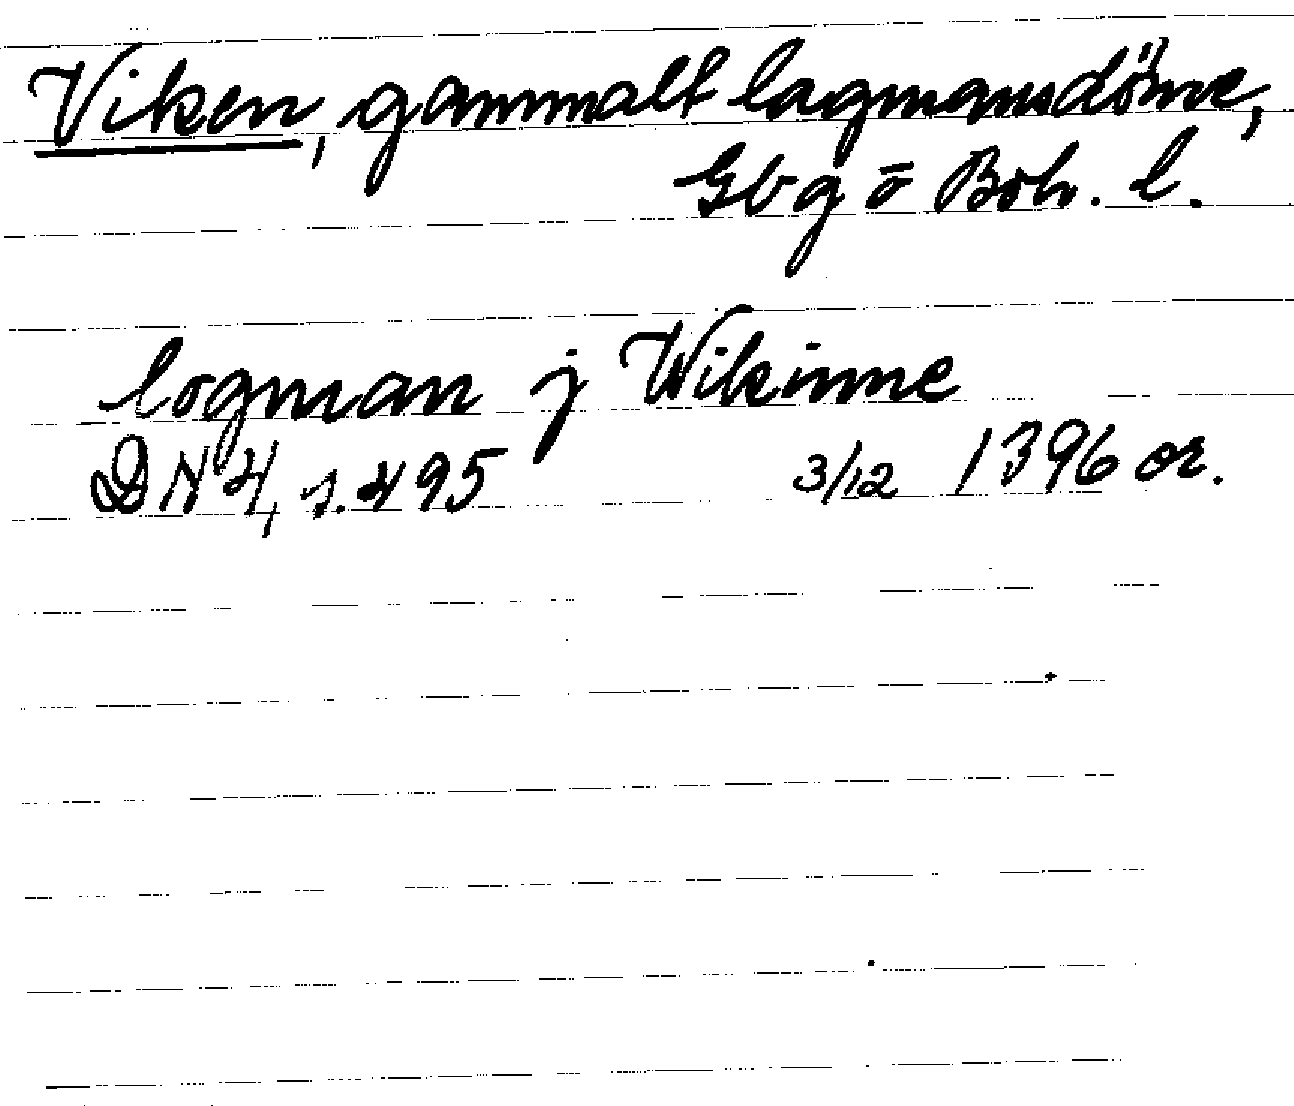 Viken, gammalt lagmansdöme,
Gbg o Boh. l.
logman j Wikinne
DN 4, s. 495 3/12 1396 or.